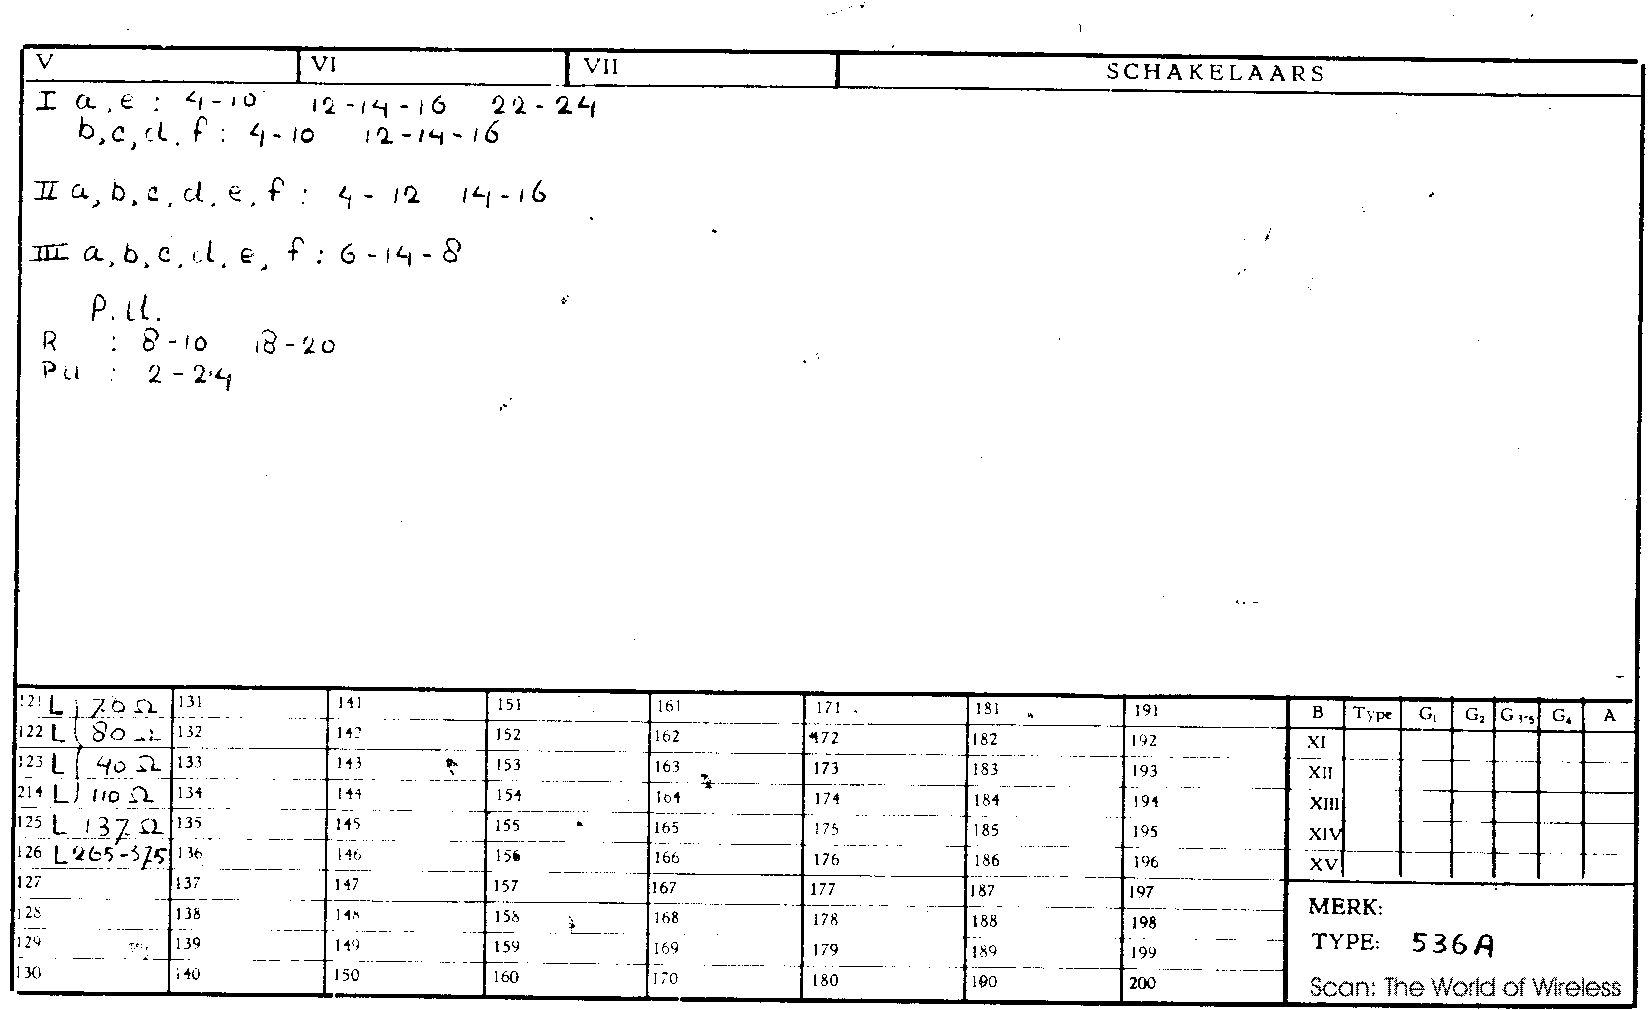 V VI VII SCHAKELAARS
I a, e : 4-10 12-14-16 22-24
b, c, d, f : 4-10 12-14-16
II a, b, c, d, e, f : 4-12 14-16
III a, b, c, d, e, f : 6-14-8
P.U.
R : 8-10 18-20
PU : 2-24
121 L 70 Ω 131 141 151 161 171 181 191 B Type G₁ G₂ G₃₋₅ G₄ A
122 L 80 Ω 132 142 152 162 172 182 192 XI
123 L 40 Ω 133 143 153 163 173 183 193 XII
214 L 110 Ω 134 144 154 164 174 184 194 XIII
125 L 137 Ω 135 145 155 165 175 185 195 XIV
126 L 265-375 136 146 156 166 176 186 196 XV
127 137 147 157 167 177 187 197
128 138 148 158 168 178 188 198 MERK:
129 139 149 159 169 179 189 199 TYPE: 536A
130 140 150 160 170 180 190 200
Scan: The World of Wireless